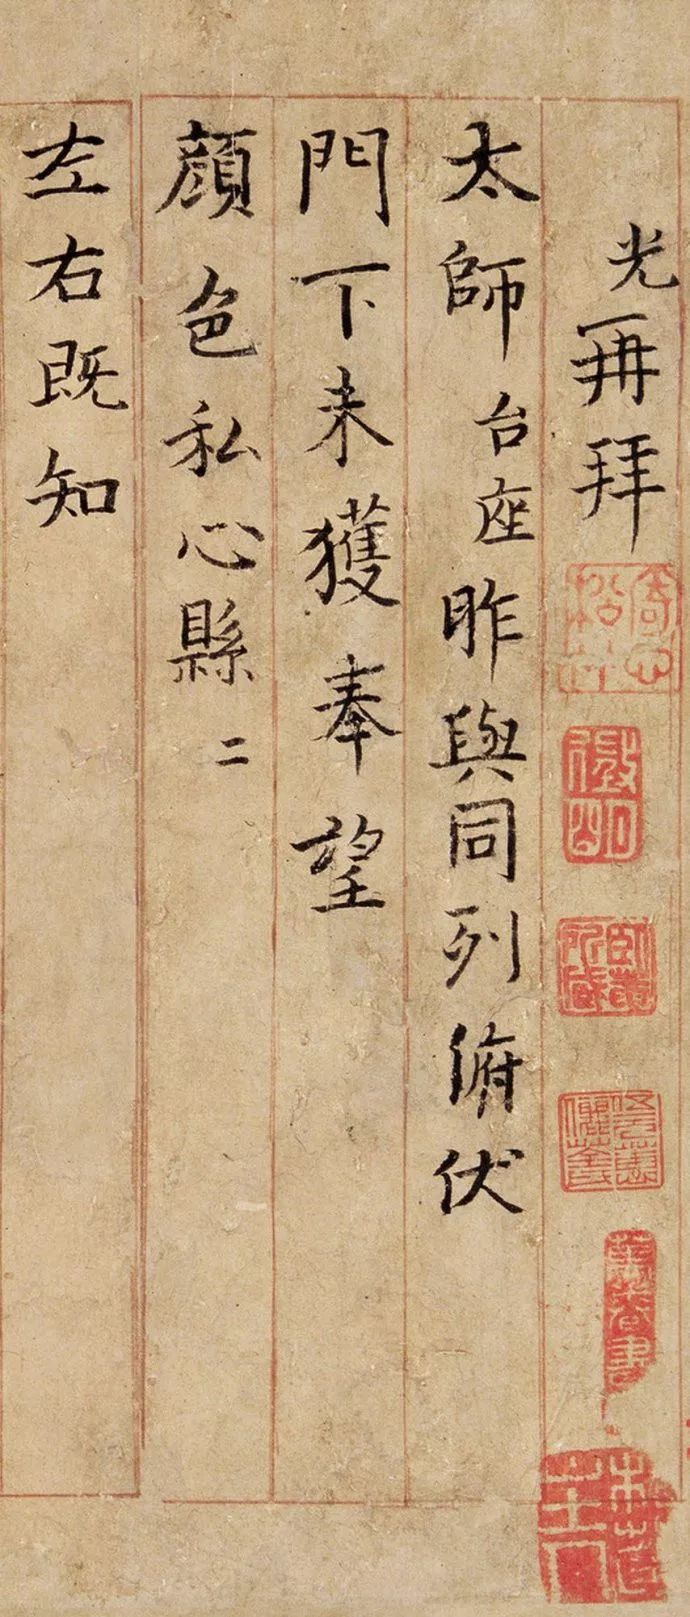 光再拜
太師台座昨與同列俯伏
門下未獲奉望
顔色私心縣二
左右既知